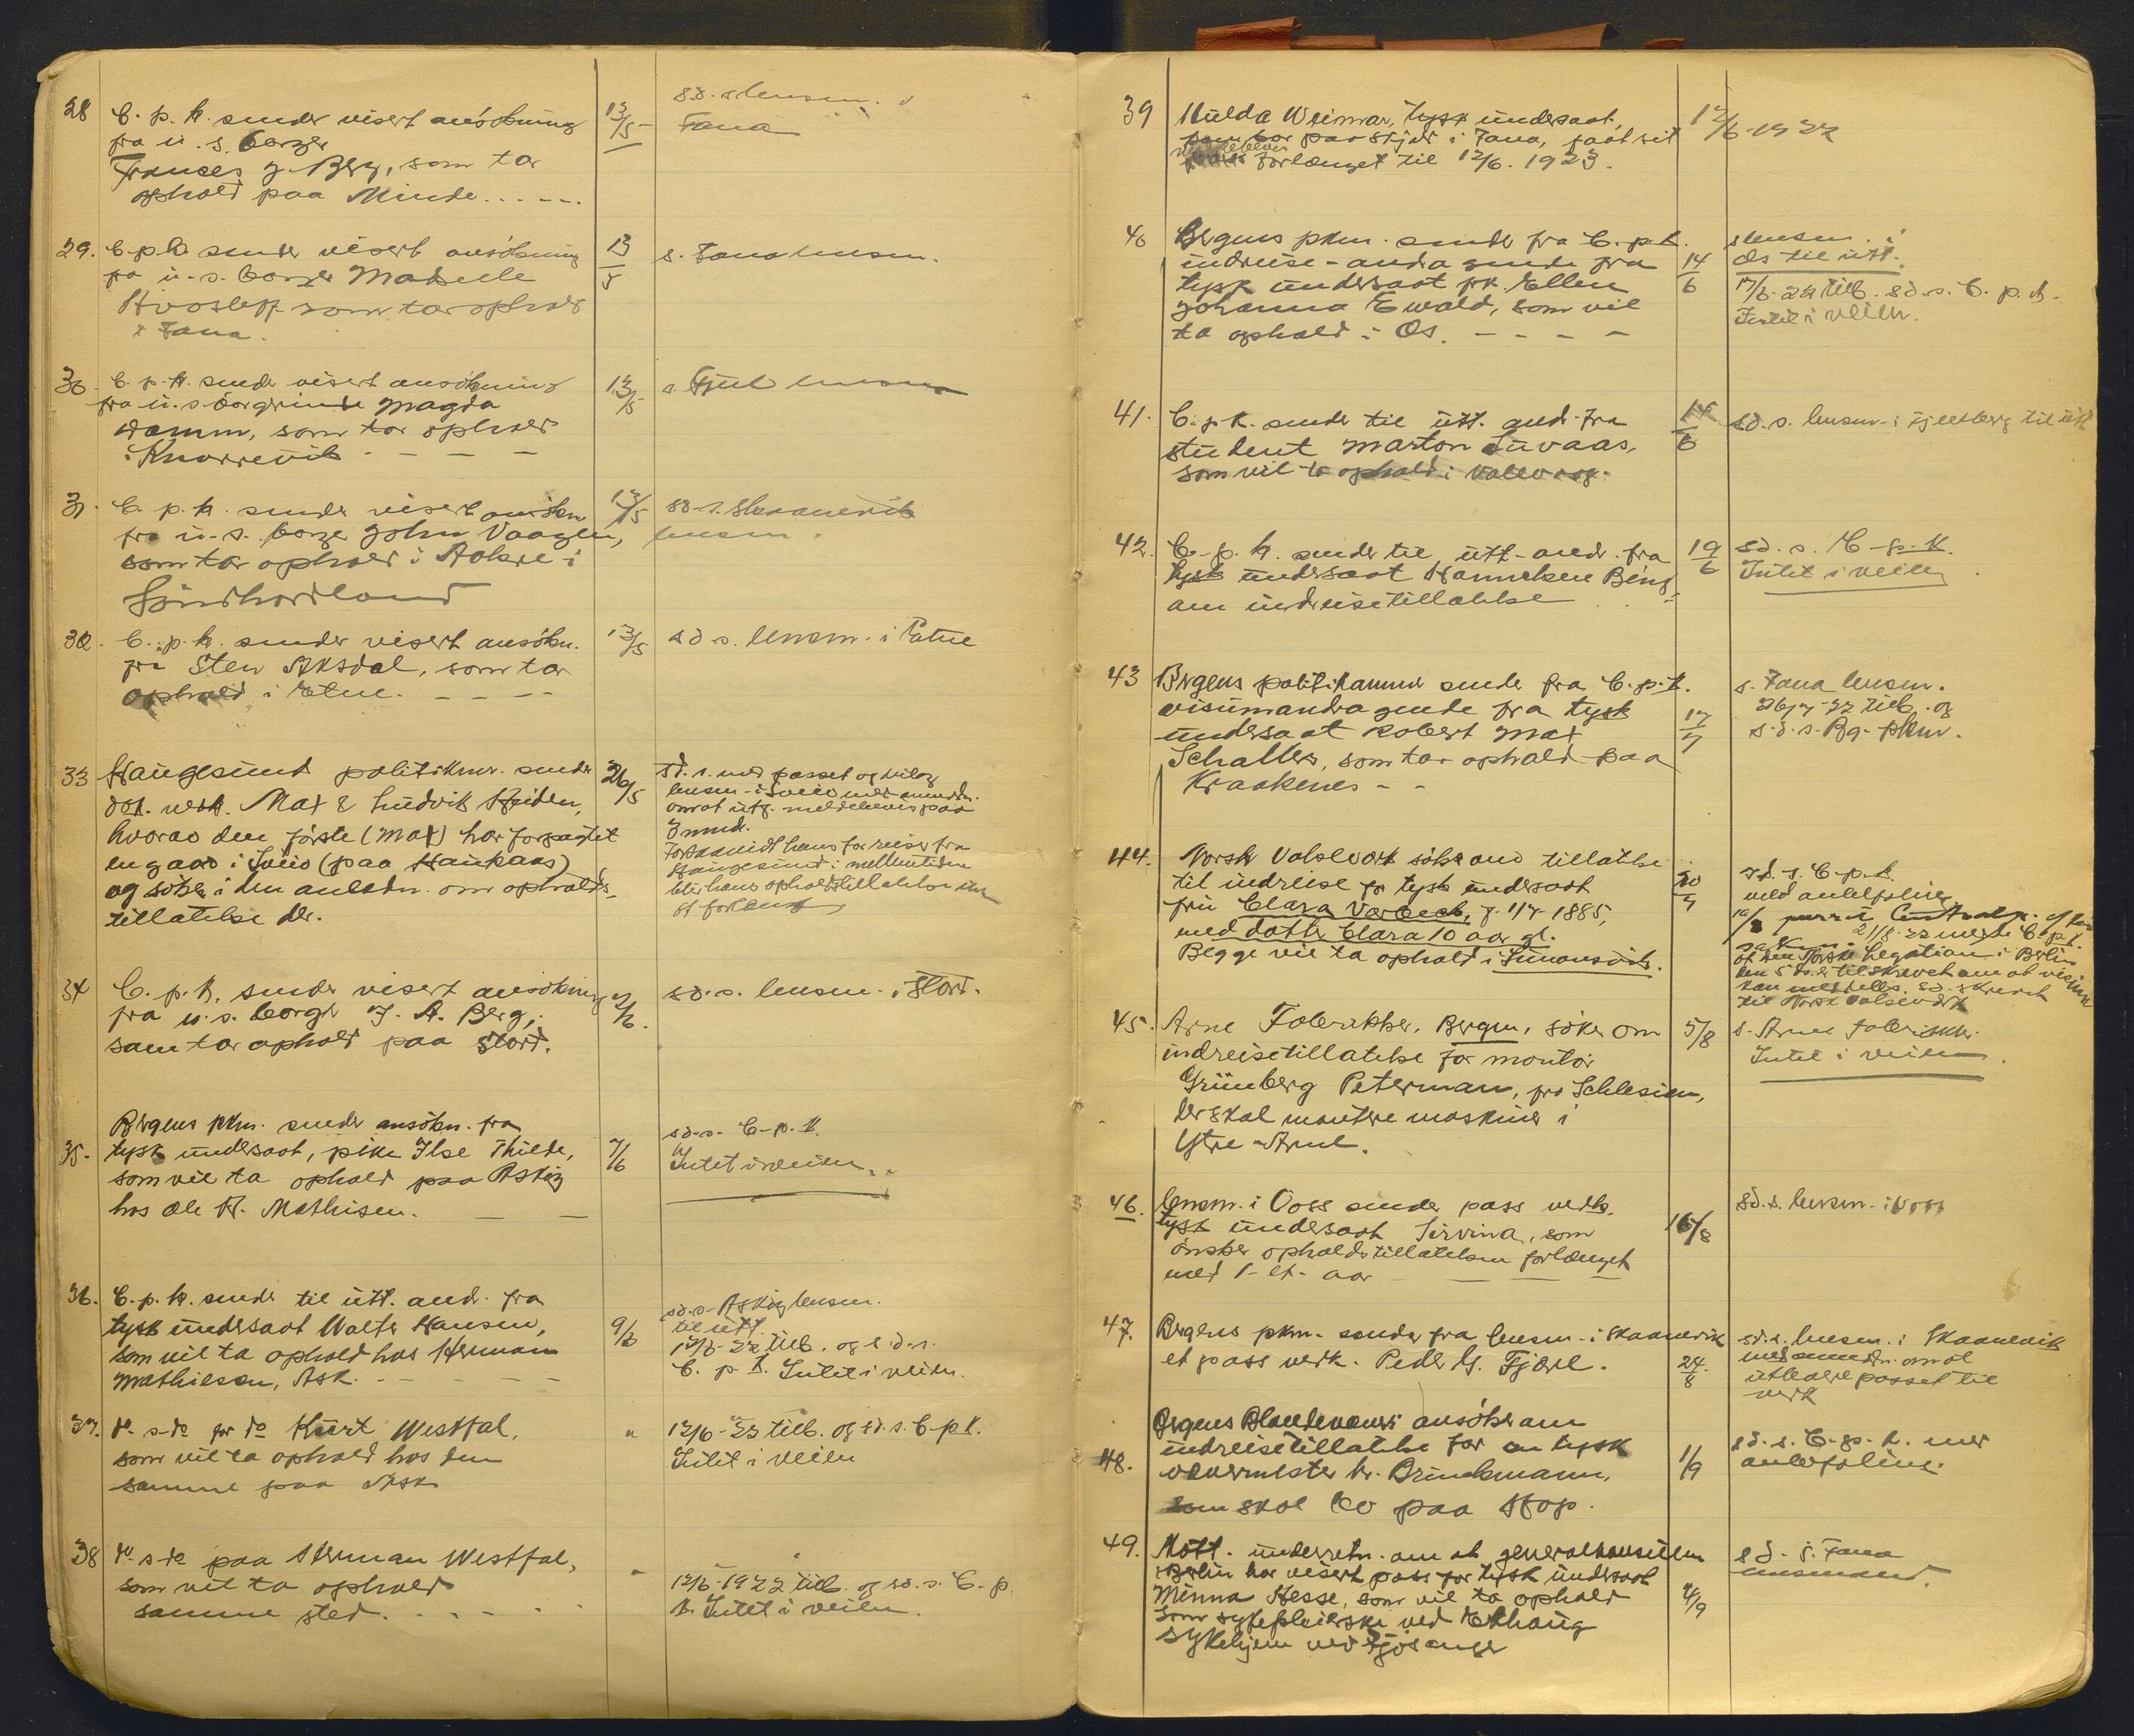 28 C. p. k. sender visert ansökning
fra u. s. borger
Frances J. Berg, som tar
ophold paa Minde . . . . .
13/5
s.d. s. lensm. i
Fana
29. C. p. k. sender visert ansökning
fra u. s. borger
som tar ophold
i Fana.
13/5
s. Fana lensm.
30 C. p. k. sender visert ansökning
fra u. s. borgerinde Magda
Damm, som tar ophold
i Knarrevik - - - -
13/5
s. lensm
31. C. p. k. sender visert ansökn
fra u. s. borger John Vaagen,
som tar ophold i Aakre i
Söndhordland
13/5
sd. s. Skaanevik
lensm.
32. C. p. k. sender visert ansökn.
fra Sten Aksdal, som tar
ophold i Etne. - - - -
13/5
sd s. lensm. i Etne
33 Haugesund politikmr. sender
dok. vedk. Max & Ludvik Heiden,
hvorav den förste (Max) har forpagtet
en gaard i Sveio (paa Haukaas)
og söker i den anledn. om opholds-
tillatelse der.
26/5
sd. s. med passet og bilag
lensm. i Sveio med anmodn.
om at utf. meldebevis paa
3 mnd.
Forsaavidt hans far reiser fra
Haugesund i mellemtiden
blir hans opholdstillatelse
at forlange
34 C. p. k. sender visert ansökning
fra u. s. borger J. A. Berg,
som tar ophold paa Stord.
2/6.
sd. s. lensm. i Stord.
35. Bergens pkm. sender ansökn. fra
tysk undersaat, pike Ilse Thilde,
som vil ta ophold paa Asköy
hos Ole A. Mathisen. — —
7/6
sd. s. C. p. k.
Intet i veien.
36. C. p. k. sender til utt. and. fra
tysk undersaat Walter Hansen,
som vil ta ophold hos Herman
Mathiesen, Ask. - - - -
9/6
sd. s. Asköy lensm.
til utt.
12/6-22 tilb. og s. d. s.
C. p. k. Intet i veien.
37. do. s. do for do Kurt Westfal,
som vil ta ophold hos den
samme paa Ask
"
12/6-22 tilb. og sd. s. C. p. k.
Intet i veien
38 do. s do paa Herman Westfal,
som vil ta ophold
samme sted. . - - . .
"
12/6-1922 tilb. og sd. s. C. p.
k. Intet i veien.
39 Hulda Weimar, tysk undersaat,
som bor paa Skjold i Fana, faat sit
meldebevis forlænget til 12/6. 1923.
12/6-1922
40 Bergens pkm. sender fra C. p. k.
indreise-andragende fra
tysk undersaat frk. Ellen
Johanna Ewald, som vil
ta ophold i Os. - - - -
14/6
s lensm. i
Os til utt.
17/6-22 tilb. sd. s. C. p. k.
Intet i veien.
41. C. p. k. sender til utt. and. fra
student Marton Luvaas,
som vil ta ophold i Valevaag.
14/6
sd. s. lensm. i Fjelberg til utt
42. C. p. k. sender til utt. and. fra
tysk undersaat Hannchen Bing
om indreisetillatelse . . -
19/6
sd. s. C. p. k.
Intet i veien
43 Bergens politikammer sender fra C. p. k.
visumandragende fra tysk
undersaat Robert Max
Schaller, som tar ophold paa
Kraakenes - -
17/7
s. Fana lensm.
26/7-22 tilb. og
s. d. s. Bg. pkm.
44. Norsk Valseverk söker om tillatelse
til indreise for tysk undersaat
fru Clara Varbeck, f. 11/7-1885,
med datter Clara 10 aar gl.
Begge vil ta ophold i Simonsvik.
20/7
sd. s. C. p. k.
med anbefaling
purret Centralp.
21/8-22 melder C. p. k.
at den Norske Legation i Berlin
den 5 ds. er tilskrevet om at visum
kan meddeles. sd. skrevet
til Norsk Valseverk
45. Arne Fabrikker, Bergen, söker om
indreisetillatelse for montör
Grünberg Peterman, fra Schlesien,
der skal montere maskiner i
Ytre-Arne.
5/8
s. Arne Fabrikker.
Intet i veien.
46. lensm. i Voss sender pass vedk.
tysk undersaat Sirvina, som
önsker opholdstillatelsen forlænget
med 1-et- aar — — —
16/8
sd. s. lensm. i Voss
47. Bergens pkm. sender fra lensm. i Skaanevik
et pass vedk. Peder G. Fjære.
24./8
sd. s. lensm. i Skaanevik
med anmodn. om at
utlevere passet til
vedk
48. Bergens Blaudeveveri ansöker om
indreisetillatelse for en tysk
vævermester hr. Brinckmann,
som skal bo paa Hop.
1/9
sd. s. C. p. k. med
anbefaling.
49. Mott. underretn. om at generalkonsulen
i Berlin har visert pass for tysk undersaat
Minna Hesse, som vil ta ophold
som sykepleierske ved Ekhaug
sykehjem ved Fjösanger
4/9
s d. s. Fana
lensmand.